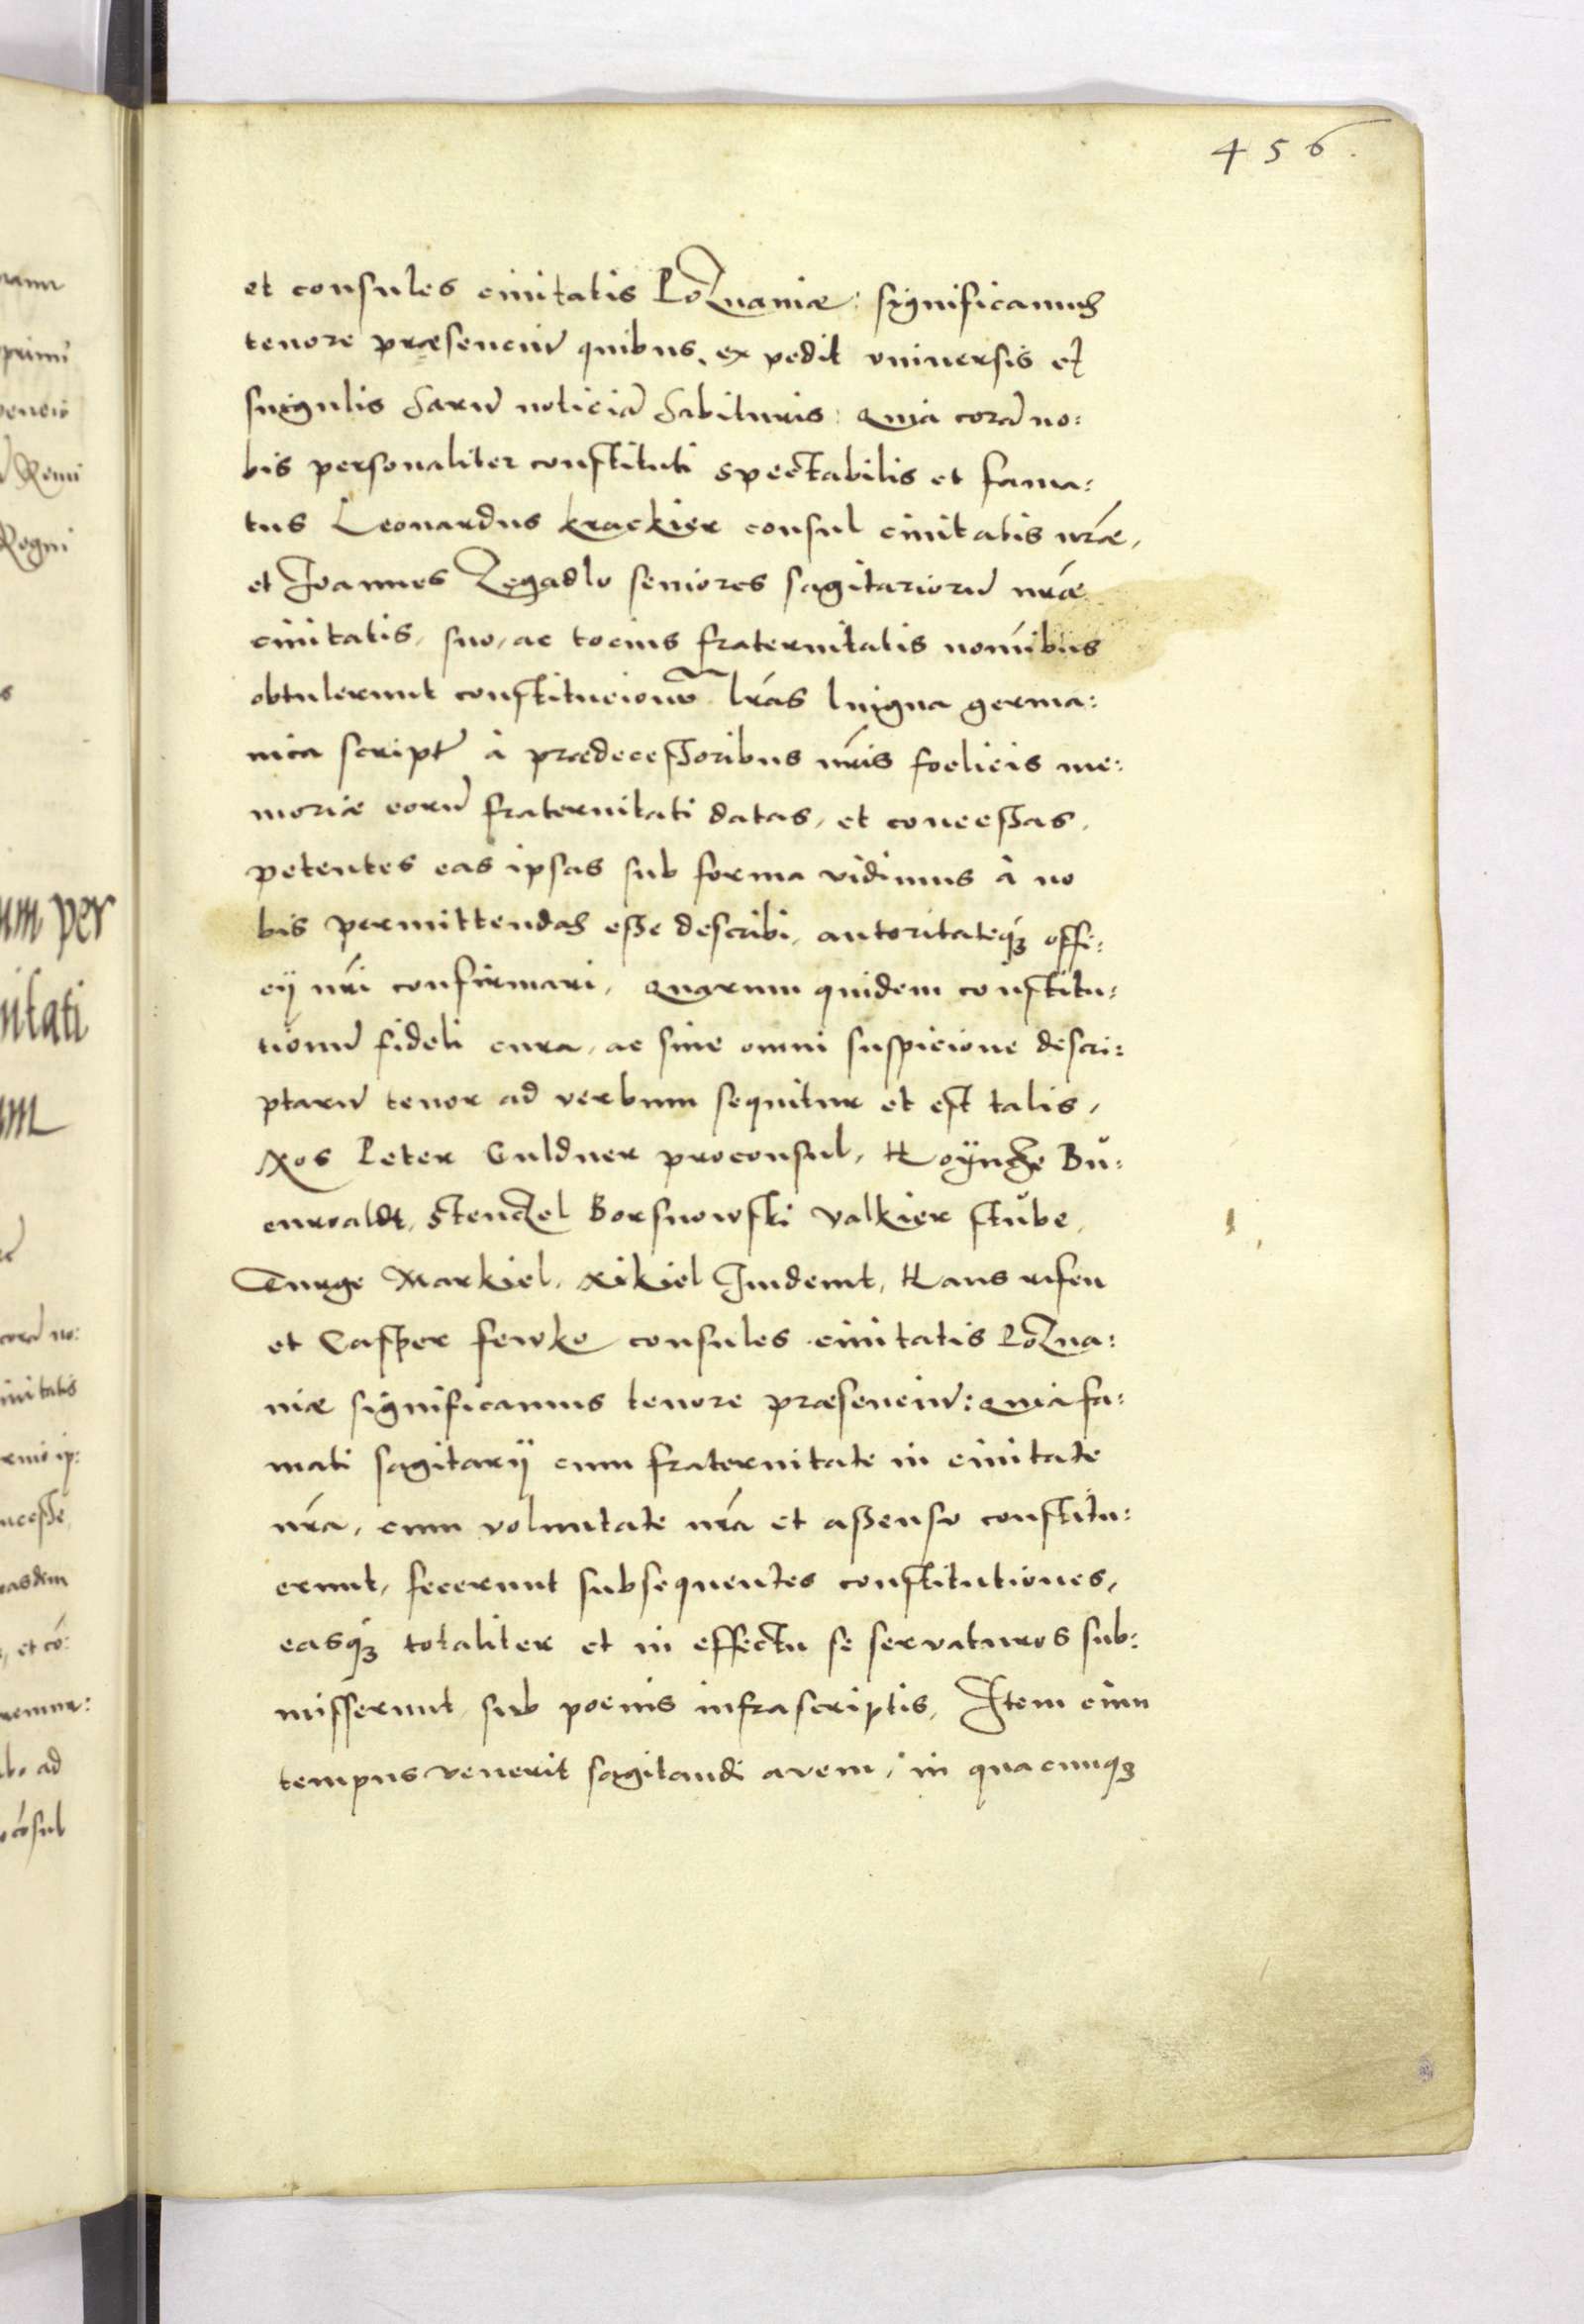 456.
et consules ciuitatis Poznaniæ: significamus
tenore præsenciũ quibus, expedit vniuersis et
singulis harũ noticiã habituris: Quia corã no:
bis personaliter constituti spectabilis et fama:
tus Leonardus krackier consul ciuitatis nr̃æ,
et Joannes Zegadlo seniores sagitariorũ nr̃æ
ciuitatis, suo, ac tocius fraternitatis noĩbus
obtulerunt constitucionũ lr̃as lingua germa:
nica script à prædecessoribus nr̃is foelicis me:
moriæ eorũ fraternitati datas, et concessas,
petentes eas ipsas sub forma vidimus à no
bis permittendas esse describi, autoritateq́ȝ offi:
cij nr̃i confirmari, Quarum quidem constitu:
tionũ fideli cura, ac sine omni suspicione descri:
ptarũ tenor ad verbum sequitur et est talis,
Nos Peter Guldner proconsul, Hoÿncze Bu:
enwaldt, Stenczel Borsnowski Valkier stube,
Turge Markiel, Nikiel Jmdemt, Hans rifen
et Casper fewke consules ciuitatis Pozna:
niæ significamus tenore præsenciũ: Quia fa:
mati sagitarij cum fraternitate in ciuitate
nr̃a, cum voluntate nr̃a et assensu constitu:
erunt, fecerunt subsequentes constitutiones,
easq́ȝ totaliter et in effectu se seruaturos sub:
misserunt sub poenis infrascriptis, Item cum
tempus venerit sagitandi auem, in quacunqȝ